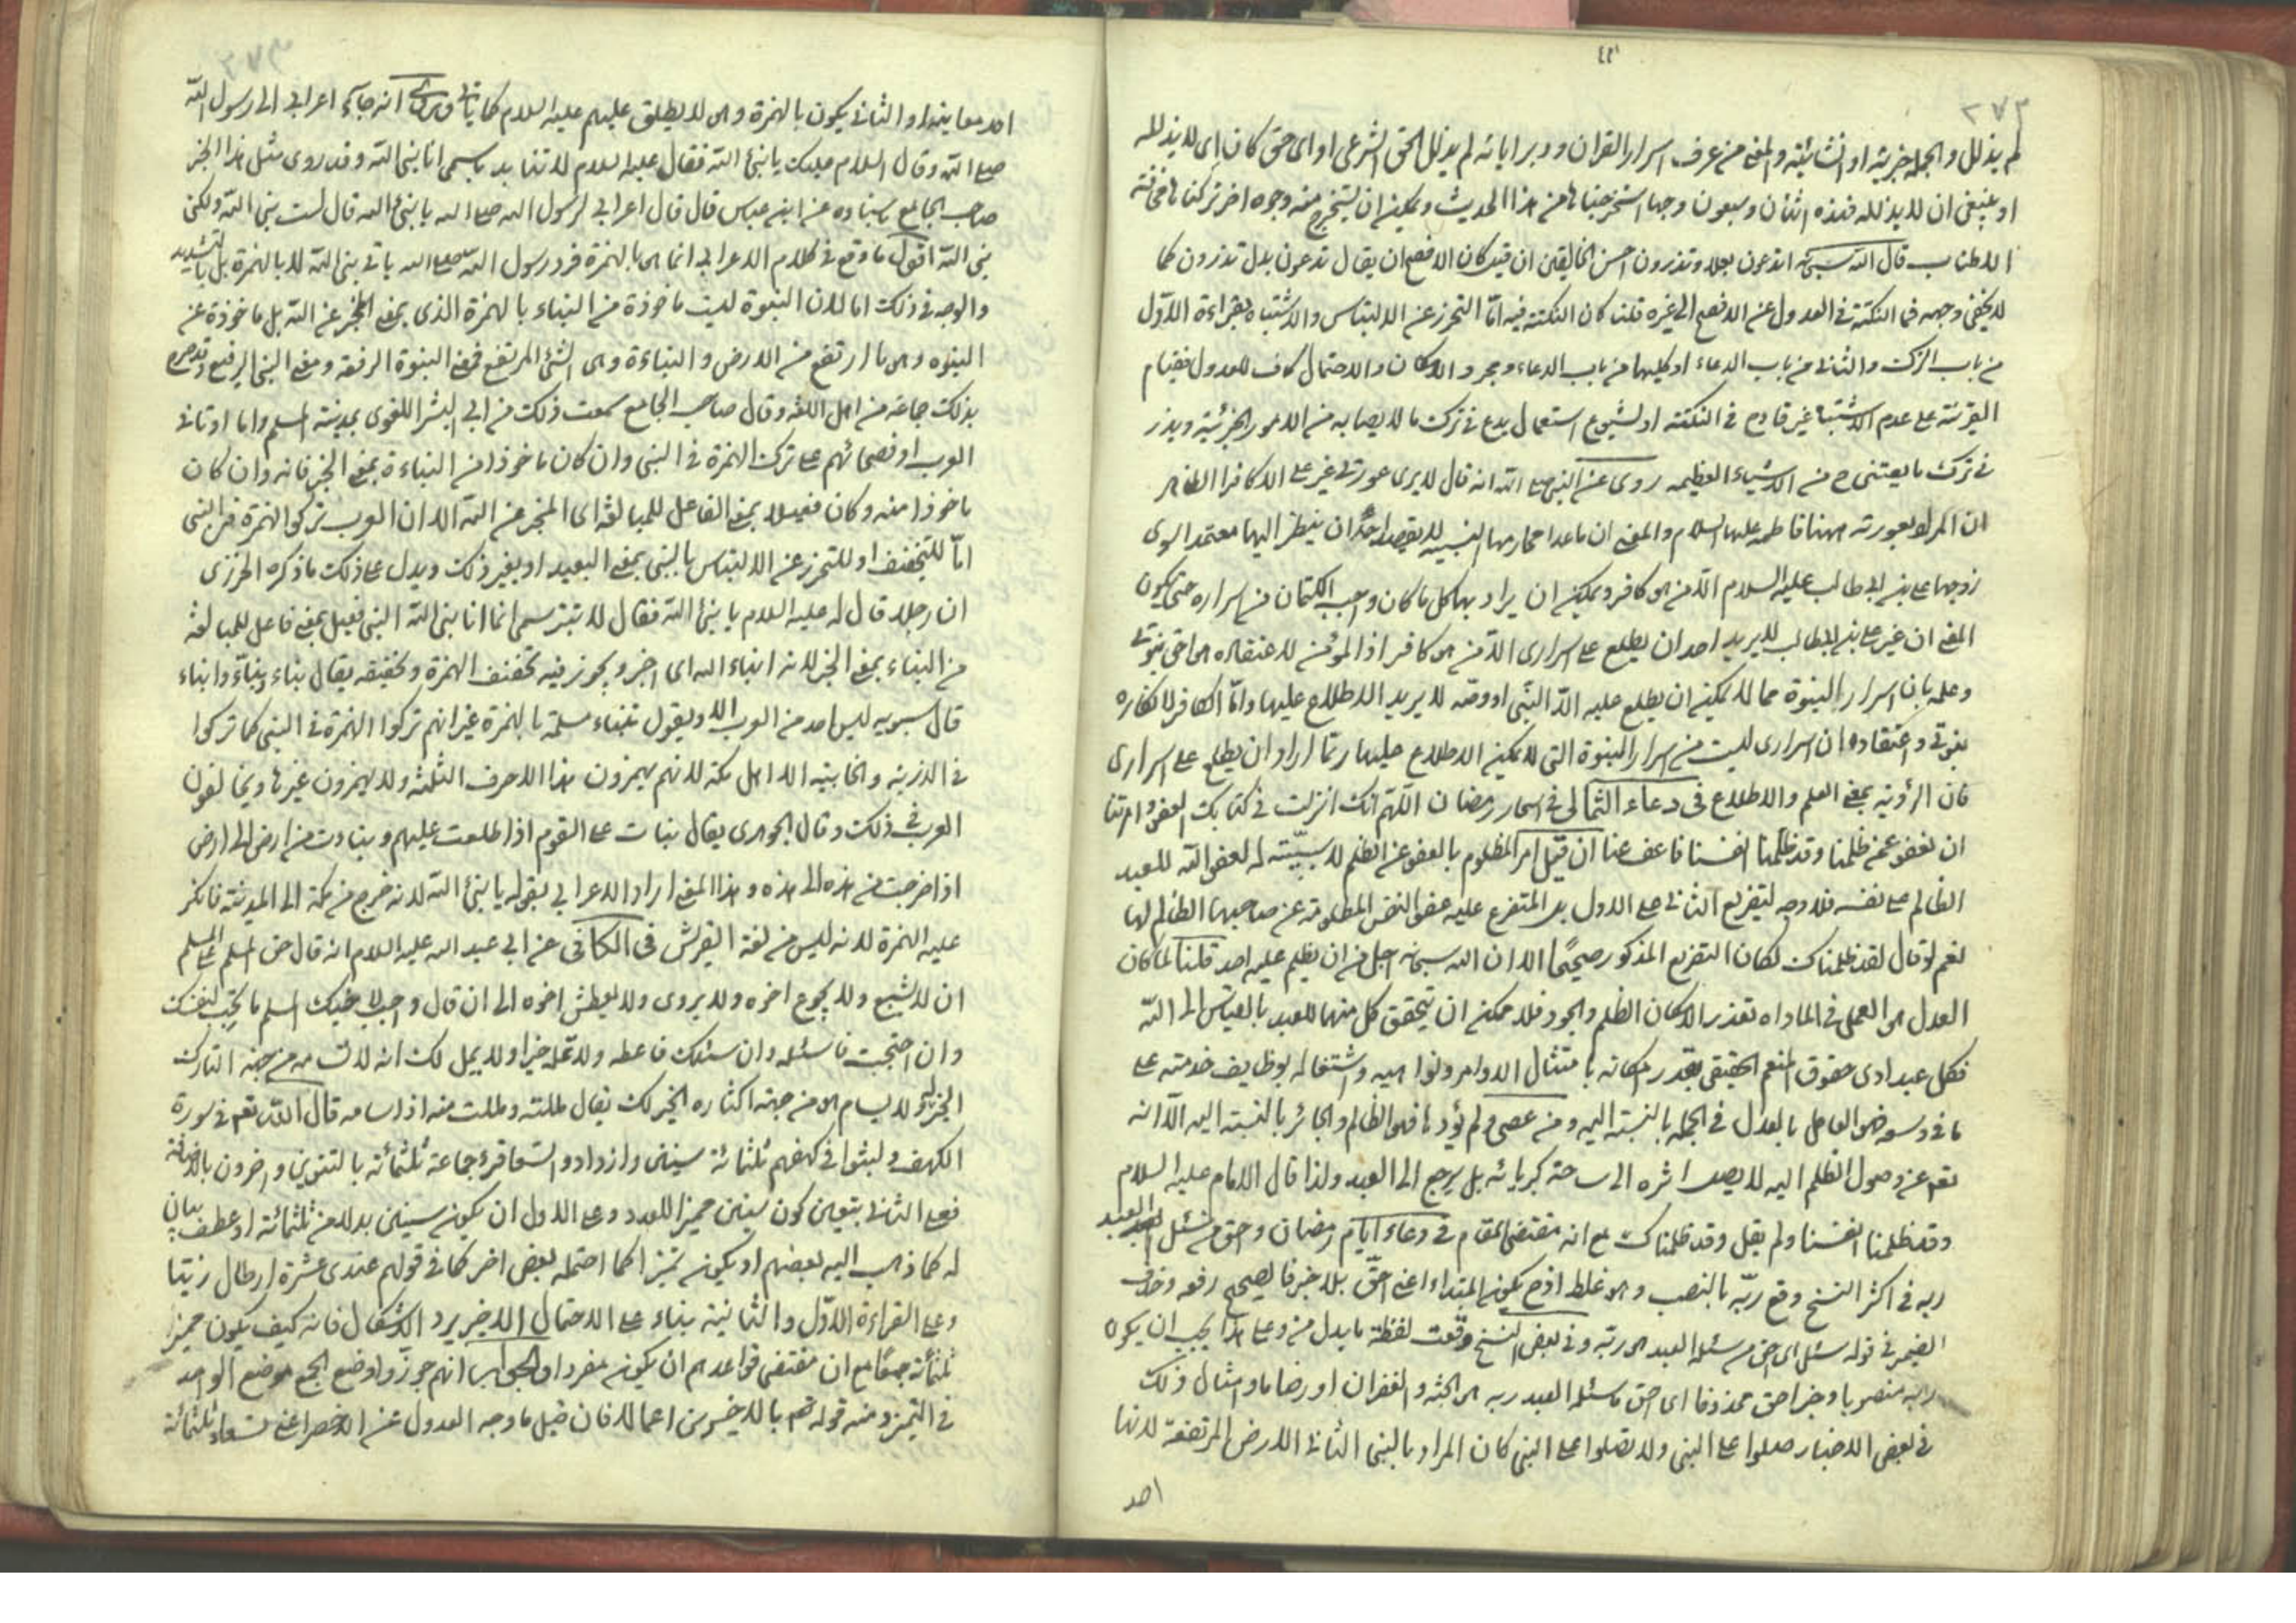 ٢٧٣
لم يذلل والجملة خبرية او انشائية والمعنى من عرف اسرار القران ودبر اياته لم يذلل الحق الشرعى او اى حق كان اى لا يذلله
او ينبغى ان لا يذلله فهذه اثنان وسبعون وجها استخرجناها من هذا الحديث ويمكن ان يستخرج منه وجوه اخر تركناها مخافة
الاطناب قال الله سبحانه اتدعون بعلا وتذرون احسن الخالقين ان قيل كان الافصح ان يقال تدعون بدل تذرون كما
لا يخفى وجهه فما النكتة فى العدول عن الافصح الى غيره قلنا كان النكتة فيه اما التحرز عن الالتباس والاشتباه بقراءة الاول
من باب الترك والثانى من باب الدعاء او كليهما من باب الدعاء ومجرد الامكان والاحتمال كاف للعدول فقيام
القرينة على عدم الاشتباه غير قادح فى النكتة او لشيوع استعمال يدع فى ترك ما لا يصابه من الامور الجزئية ويذر
فى ترك ما يعتنى من الاشياء العظيمة روى عن النبى صلى الله انه قال لا يرى عورتى غير على الا كافرا الظاهر
ان المراد بعورته ههنا فاطمة عليها السلام والمعنى ان ما عدا محارمها النسبية لا يقصد احد ان ينظر اليها معتمدا سوى
زوجها على بن ابى طالب عليه السلام الا من هو كافر ويمكن ان يراد بها كل ما كان واجب الكتمان من اسراره حتى يكون
المعنى ان غير على بن ابى طالب لا يريد احد ان يطلع على اسرارى الا من هو كافر اذ المؤمن لاعتقاده حق نبوتى
وعلمه بان اسرار النبوة مما لا يمكن ان يطلع عليه الا النبى او وصيه لا يريد الاطلاع عليها واما الكافر لانكاره
بنوتى واعتقاده ان اسرارى ليست من اسرار النبوة التى لا يمكن الاطلاع عليها ربما اراد ان يطلع على اسرارى
فان الرؤية بمعنى العلم والاطلاع فى دعاء الثمالى فى اسحار رمضان اللهم انك انزلت فى كتابك العفو وامرتنا
ان نعفو عمن ظلمنا وقد ظلمنا انفسنا فاعف عنا ان قيل امر المظلوم بالعفو عن الظلم لا سببية له لعفو الله للعبد
الظالم على نفسه فلا وجه لتفريع الثانى على الاول بل المتفرع عليه عفو النفس المظلومة عن صاحبها الظالم لها
نعم لو قال لقد ظلمناك لكان التفريع المذكور صحيحا الا ان الله سبحانه اجل من ان يظلم عليه احد قلنا لما كان
العدل هو العمل فى المساواه بقدر الامكان الظلم والجود فلا يمكن ان يتحقق كل منهما للعبد بالقياس الى الله
فكل عبد ادى حقوق المنعم الحقيقى بقدر امكانه بامتثال الاوامر ونواهيه واشتغاله بوظايف خدمته على
ما فى وسعه فهو العامل بالعدل فى الجملة بالنسبة اليه ومن عصى ولم يؤدها فهو الظالم والجائر بالنسبة اليه الا انه
تعالى عن وصول الظلم اليه لا يصل اثره الى ساحة كبريائه بل يرجع الى العبد ولذا قال الامام عليه السلام
وقد ظلمنا انفسنا ولم يقل وقد ظلمناك مع انه مقتضى المقام فى دعاء ايام رمضان وحق من سئل العبد
ربه فى اكثر النسخ وقع ربه بالنصب وهو غلط اذ ح يكون المبتداء اعنى احق بلا خبر فالصحيح رفعه وحذف
الضمير فى قوله سئل اى احق من سئله العبد هو ربه وفى بعض النسخ وقعت لفظة ما بدل من وعلى هذا يجب ان يكون
ربه منصوبا وخبر احق محذوفا اى احق ما سئله العبد ربه هو الجنة والغفران او رضاه او امثال ذلك
فى بعض الاخبار صلوا على النبى ولا تصلوا على النبى كان المراد بالنبى الثانى الارض المرتفعة لانها
احد
احد معانيه او الثانى يكون بالهمزة وهو لا يطلق عليهم عليه السلام كما ياتى وروى انه جاء اعرابى الى رسول الله
صلى الله وقال السلام عليك يا نبئ الله فقال عليه السلام لا تنابذ باسمى انا نبى الله وقد روى مثل هذا الخبر
صاحب الجامع باسناده عن ابن عباس قال قال اعرابى لرسول الله صلى الله يا نبئ الله قال لست بنبئ الله ولكن
نبى الله اقول ما وقع فى كلام الاعرابى انما هو بالهمزة فرد رسول الله صلى الله بانى نبى الله لا بالهمزة بل بالتشديد
والوجه فى ذلك اما لان النبوة ليست ماخوذة من النباء بالهمزة الذى بمعنى المخبر عن الله بل ماخوذة عن
النبوه وهو ما ارتفع من الارض والنباءة وهو الشئ المرتفع فمعنى النبوة الرفعة ومعنى النبى الرفيع وقد صرح
بذلك جماعة من اهل اللغة وقال صاحب الجامع سمعت ذلك من ابى البشر اللغوى بمدينة السلم واما
العرب او فصحائهم على ترك الهمزة فى النبى وان كان ماخوذا من النباءة بمعنى الخبر فانه وان كان
ماخوذا منه وكان فعيلا بمعنى الفاعل للمبالغة اى المنجر عن الله الا ان العرب تركوا الهمزة فى النبى
اما للتخفيف او للتحرز عن الالتباس بالنبى بمعنى البعيد او بغير ذلك ويدل على ذلك ما ذكره الجزرى
ان رجلا قال له عليه السلام يا نبئ الله فقال لا تنبز باسمى انما انا نبى الله النبى فعيل بمعنى فاعل للمبالغة
من النباء بمعنى الخبر لانه انباء الله اى اخبر ويجوز فيه تخفيف الهمزة وتحقيقه يقال نباء ونباء وانباء
قال سيبويه ليس احد من العرب الا ويقول تنباء مسلمة بالهمزة غير انهم تركوا الهمزة فى النبى كما تركوا
فى الذرية والخابية الا اهل مكة لانهم يهمزون هذا الاحرف الثلثة ولا يهمزون غيرها ويخالفون
العرب فى ذلك وقال الجوهرى يقال نبات على القوم اذا طلعت عليهم ونبات من ارض الى ارض
اذا خرجت من هذه الى هذه وهذا المعنى اراد الاعرابى بقوله يا نبئ الله لانه خرج من مكة الى المدينة فانكر
عليه الهمزة لانه ليس من لغة القرش فى الكافى عن ابى عبد الله عليه السلام انه قال حق المسلم على المسلم
ان لا يشبع ولا يجوع اخوه ولا يروى ولا يعطش اخوه الى ان قال واحب لاخيك المسلم ما تحب لنفسك
وان احتجت فاسئله وان سئلك فاعطه ولا تمله خيرا ولا يمل لك انه لا تسامه من جهة التارك
الخير له ولا يسام هو من جهة اكثاره الخير لك يقال مللته ومللت منه اذا سامه قال الله تعالى فى سورة
الكهف ولبثوا فى كهفهم ثلثمائة سنين وازدادوا تسعا قرء جماعة ثلثمائة بالتنوين واخرون بالاضافة
فعلى الثانى يتعين كون سنين مميزا للعدد وعلى الاول ان يكون سنين بدلا من ثلثمائة او عطف بيان
له كما ذهب اليه بعضهم او يكون تميزا كما احتمله بعض اخر كما فى قولهم عندى عشرة ارطال زيتا
وعلى القراءة الاول والثانية بناء على الاحتمال الاخير يرد الاشكال فانه كيف يكون مميز
ثلثمائة جمعا مع ان مقتضى قواعدهم ان يكون مفردا والجواب انهم جوزوا وضع الجمع موضع الواحد
فى التميز ومنه قوله تعالى بالاخسرين اعمالا فان قيل ما وجه العدول عن الاخصر اعنى تسعا وثلثمائة